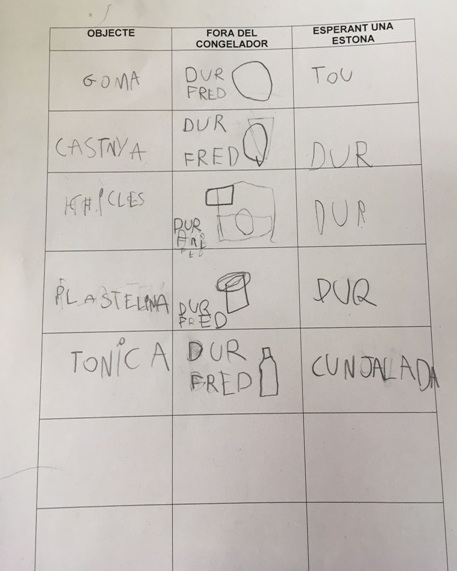 OBJECTE
FORA DEL
CONGELADOR
ESPERANT UNA
ESTONA
GOMA
DUR
FRED
TOU
CASTNYA
DUR
FRED
DUR
CLES
DUR
DUR
PLASTELINA
DUR
FRED
DUR
TONICA
DUR
FRED
CUNJALADA